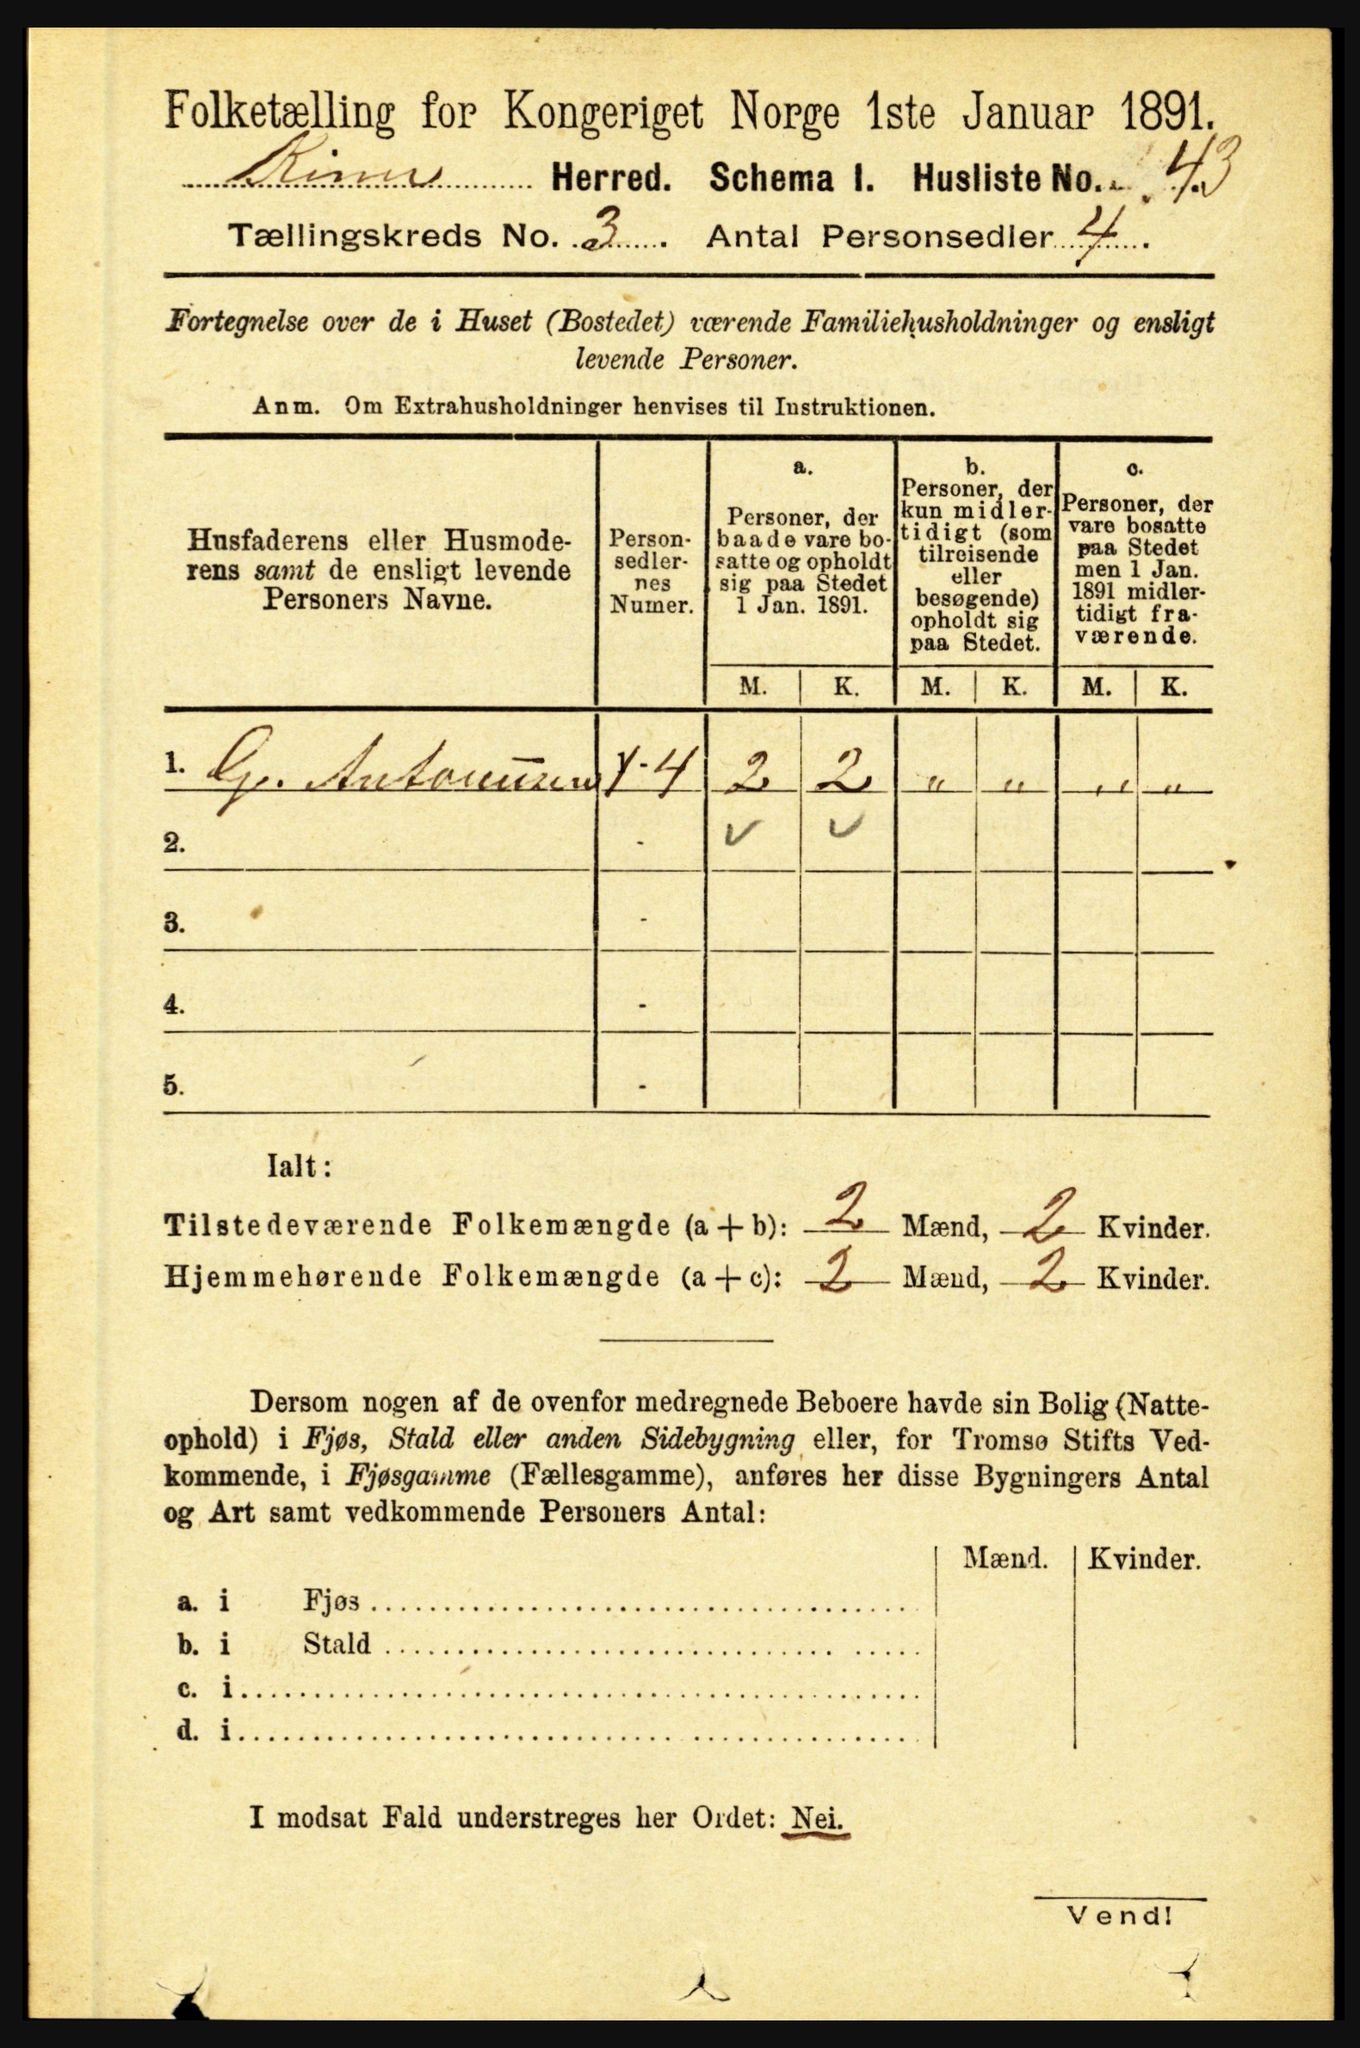 Folketælling for Kongeriget Norge 1ste Januar 1891.
Kinn Herred. Schema I. Husliste No. 43
Tællingskreds No. 3. Antal Personsedler 4.
Fortegnelse over de i Huset (Bostedet) værende Familiehusholdninger og ensligt
levende Personer.
Anm. Om Extrahusholdninger henvises til Instruktionen.
Husfaderens eller Husmode-
rens samt de ensligt levende
Personers Navne.
Person-
sedler-
nes
Numer.
a.
Personer, der
baade vare bo-
satte og opholdt
sig paa Stedet
1 Jan. 1891.
b.
Personer, der
kun midler-
tidigt (som
tilreisende
eller
besøgende)
opholdt sig
paa Stedet.
c.
Personer, der
vare bosatte
paa Stedet
men 1 Jan.
1891 midler-
tidigt fra-
værende.
M. K. M. K. M. K.
1. G. Antoniusen 1-4 2 2 „ „ „ „
2. -
3. -
4. -
5. -
Ialt:
Tilstedeværende Folkemængde (a + b): 2 Mænd, 2 Kvinder.
Hjemmehørende Folkemængde (a + c): 2 Mænd, 2 Kvinder.
Dersom nogen af de ovenfor medregnede Beboere havde sin Bolig (Natte-
ophold) i Fjøs, Stald eller anden Sidebygning eller, for Tromsø Stifts Ved-
kommende, i Fjøsgamme (Fællesgamme), anføres her disse Bygningers Antal
og Art samt vedkommende Personers Antal:
Mænd. Kvinder.
a. i Fjøs
b. i Stald
c. i
d. i
I modsat Fald understreges her Ordet: Nei.
Vend!